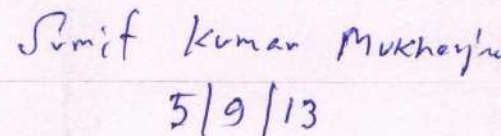 Sumit Kumar Mukherjee
5/9/13